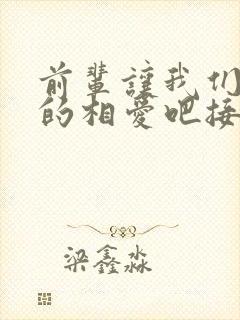 前辈让我们
的相爱吧接
梁鑫淼